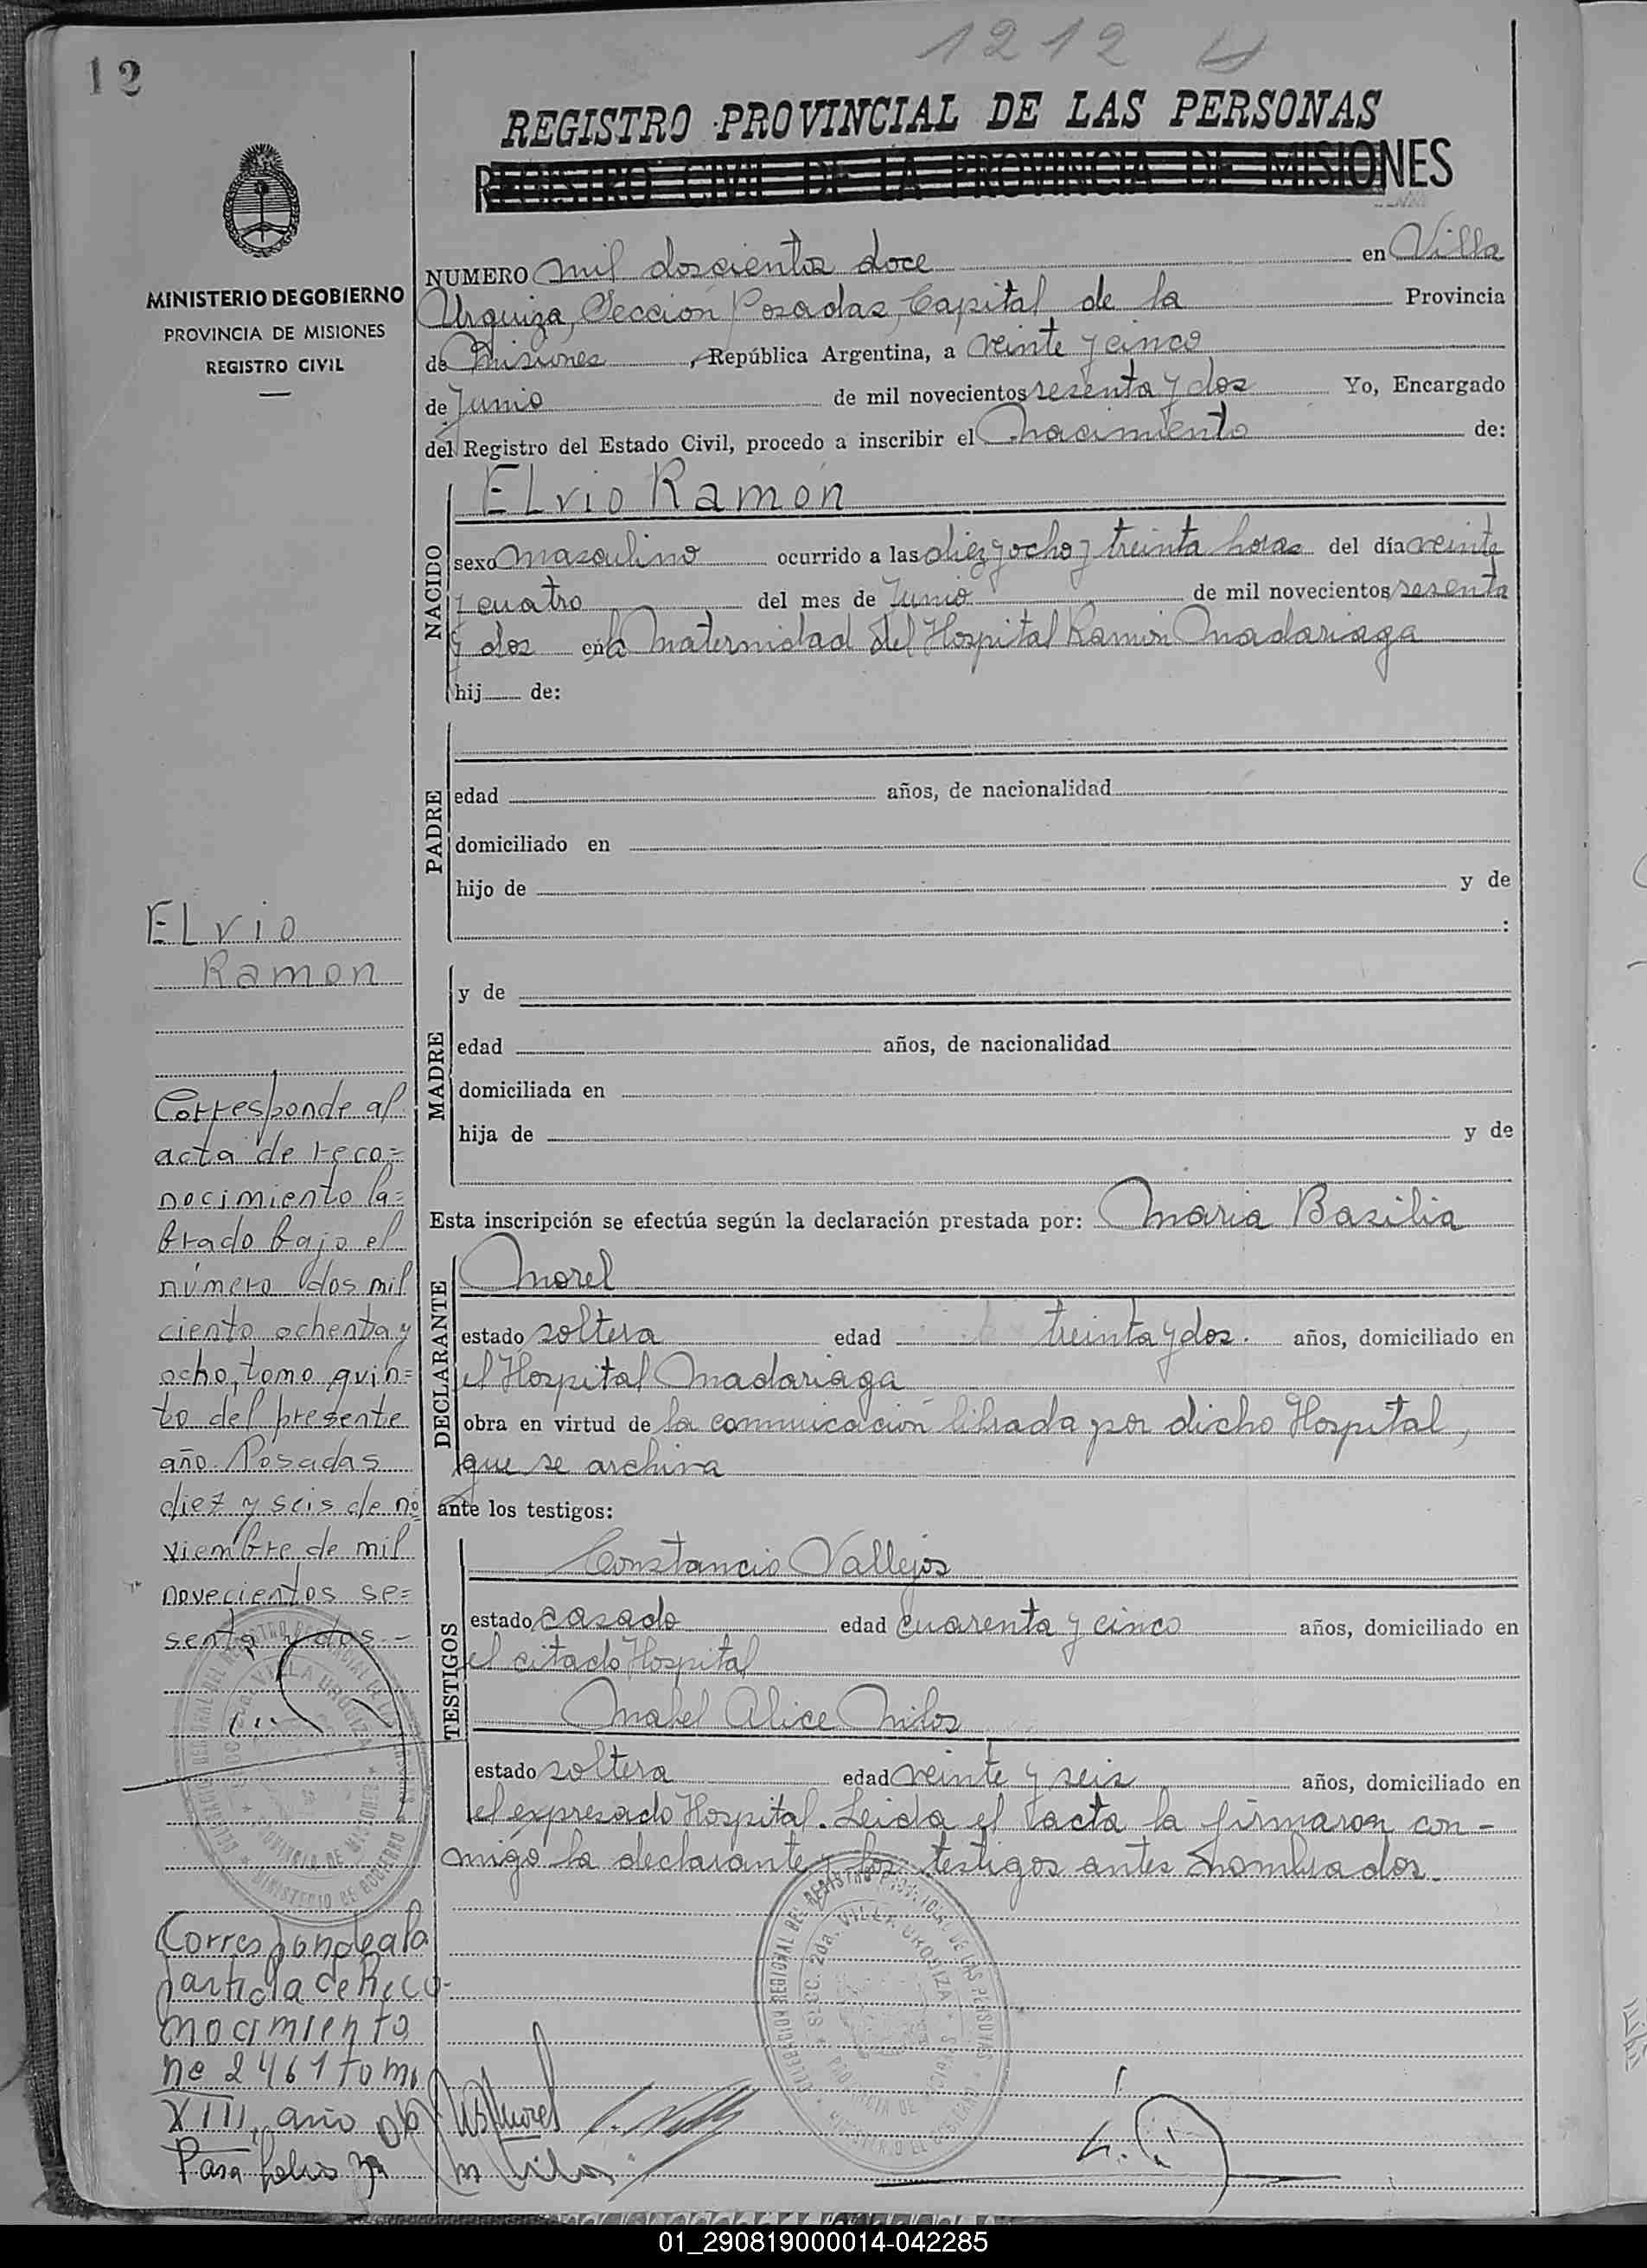 12
1212
REGISTRO PROVINCIAL DE LAS PERSONAS
REGISTRO CIVIL DE LA PROVINCIA DE MISIONES
MINISTERIO DE GOBIERNO
PROVINCIA DE MISIONES
REGISTRO CIVIL
NUMERO mil doscientos doce en Villa
Urquiza, Sección Posadas, Capital de la Provincia
de Misiones, República Argentina, a veinte y cinco
de Junio de mil novecientos sesenta y dos Yo, Encargado
del Registro del Estado Civil, procedo a inscribir el nacimiento de:
NACIDO
ELvio Ramón
sexo masculino ocurrido a las diez y ocho y treinta horas del día veinte
y cuatro del mes de Junio de mil novecientos sesenta
y dos en la Maternidad del Hospital Ramón Madariaga
hij de:
PADRE
edad años, de nacionalidad
domiciliado en
hijo de y de
:
MADRE
y de
edad años, de nacionalidad
domiciliada en
hija de y de
Esta inscripción se efectúa según la declaración prestada por: Maria Basilia
DECLARANTE
Morel
estado soltera edad treinta y dos. años, domiciliado en
el Hospital Madariaga
obra en virtud de la comunicación librada por dicho Hospital,
que se archiva
ante los testigos:
TESTIGOS
Constancio Vallejos
estado casado edad cuarenta y cinco años, domiciliado en
el citado Hospital
Mabel Alice Milos
estado soltera edad veinte y seis años, domiciliado en
el expresado Hospital. Leida el acta la firmaron con-
migo la declarante y los testigos antes nombrados.
ELvio
Ramon
Corresponde al
acta de reco=
nocimiento la=
brado bajo el
número dos mil
ciento ochenta y
ocho, tomo quin=
to del presente
año. Posadas
diez y seis de no
viembre de mil
novecientos se=
senta y dos.-
DELEGACION REGIONAL DEL REGISTRO PROVINCIAL DE LAS PERSONAS
SECC. 2da. VILLA URQUIZA
PROVINCIA DE MISIONES
MINISTERIO DE GOBIERNO
Corresponde a la
partida de Reco-
nocimiento
ne 2461 tomo
XIII, año
Para folio
DELEGACION REGIONAL DEL REGISTRO PROVINCIAL DE LAS PERSONAS
SECC. 2da. VILLA URQUIZA
PROVINCIA DE MISIONES
MINISTERIO DE GOBIERNO
MBMorel
M Milos
01_290819000014-042285